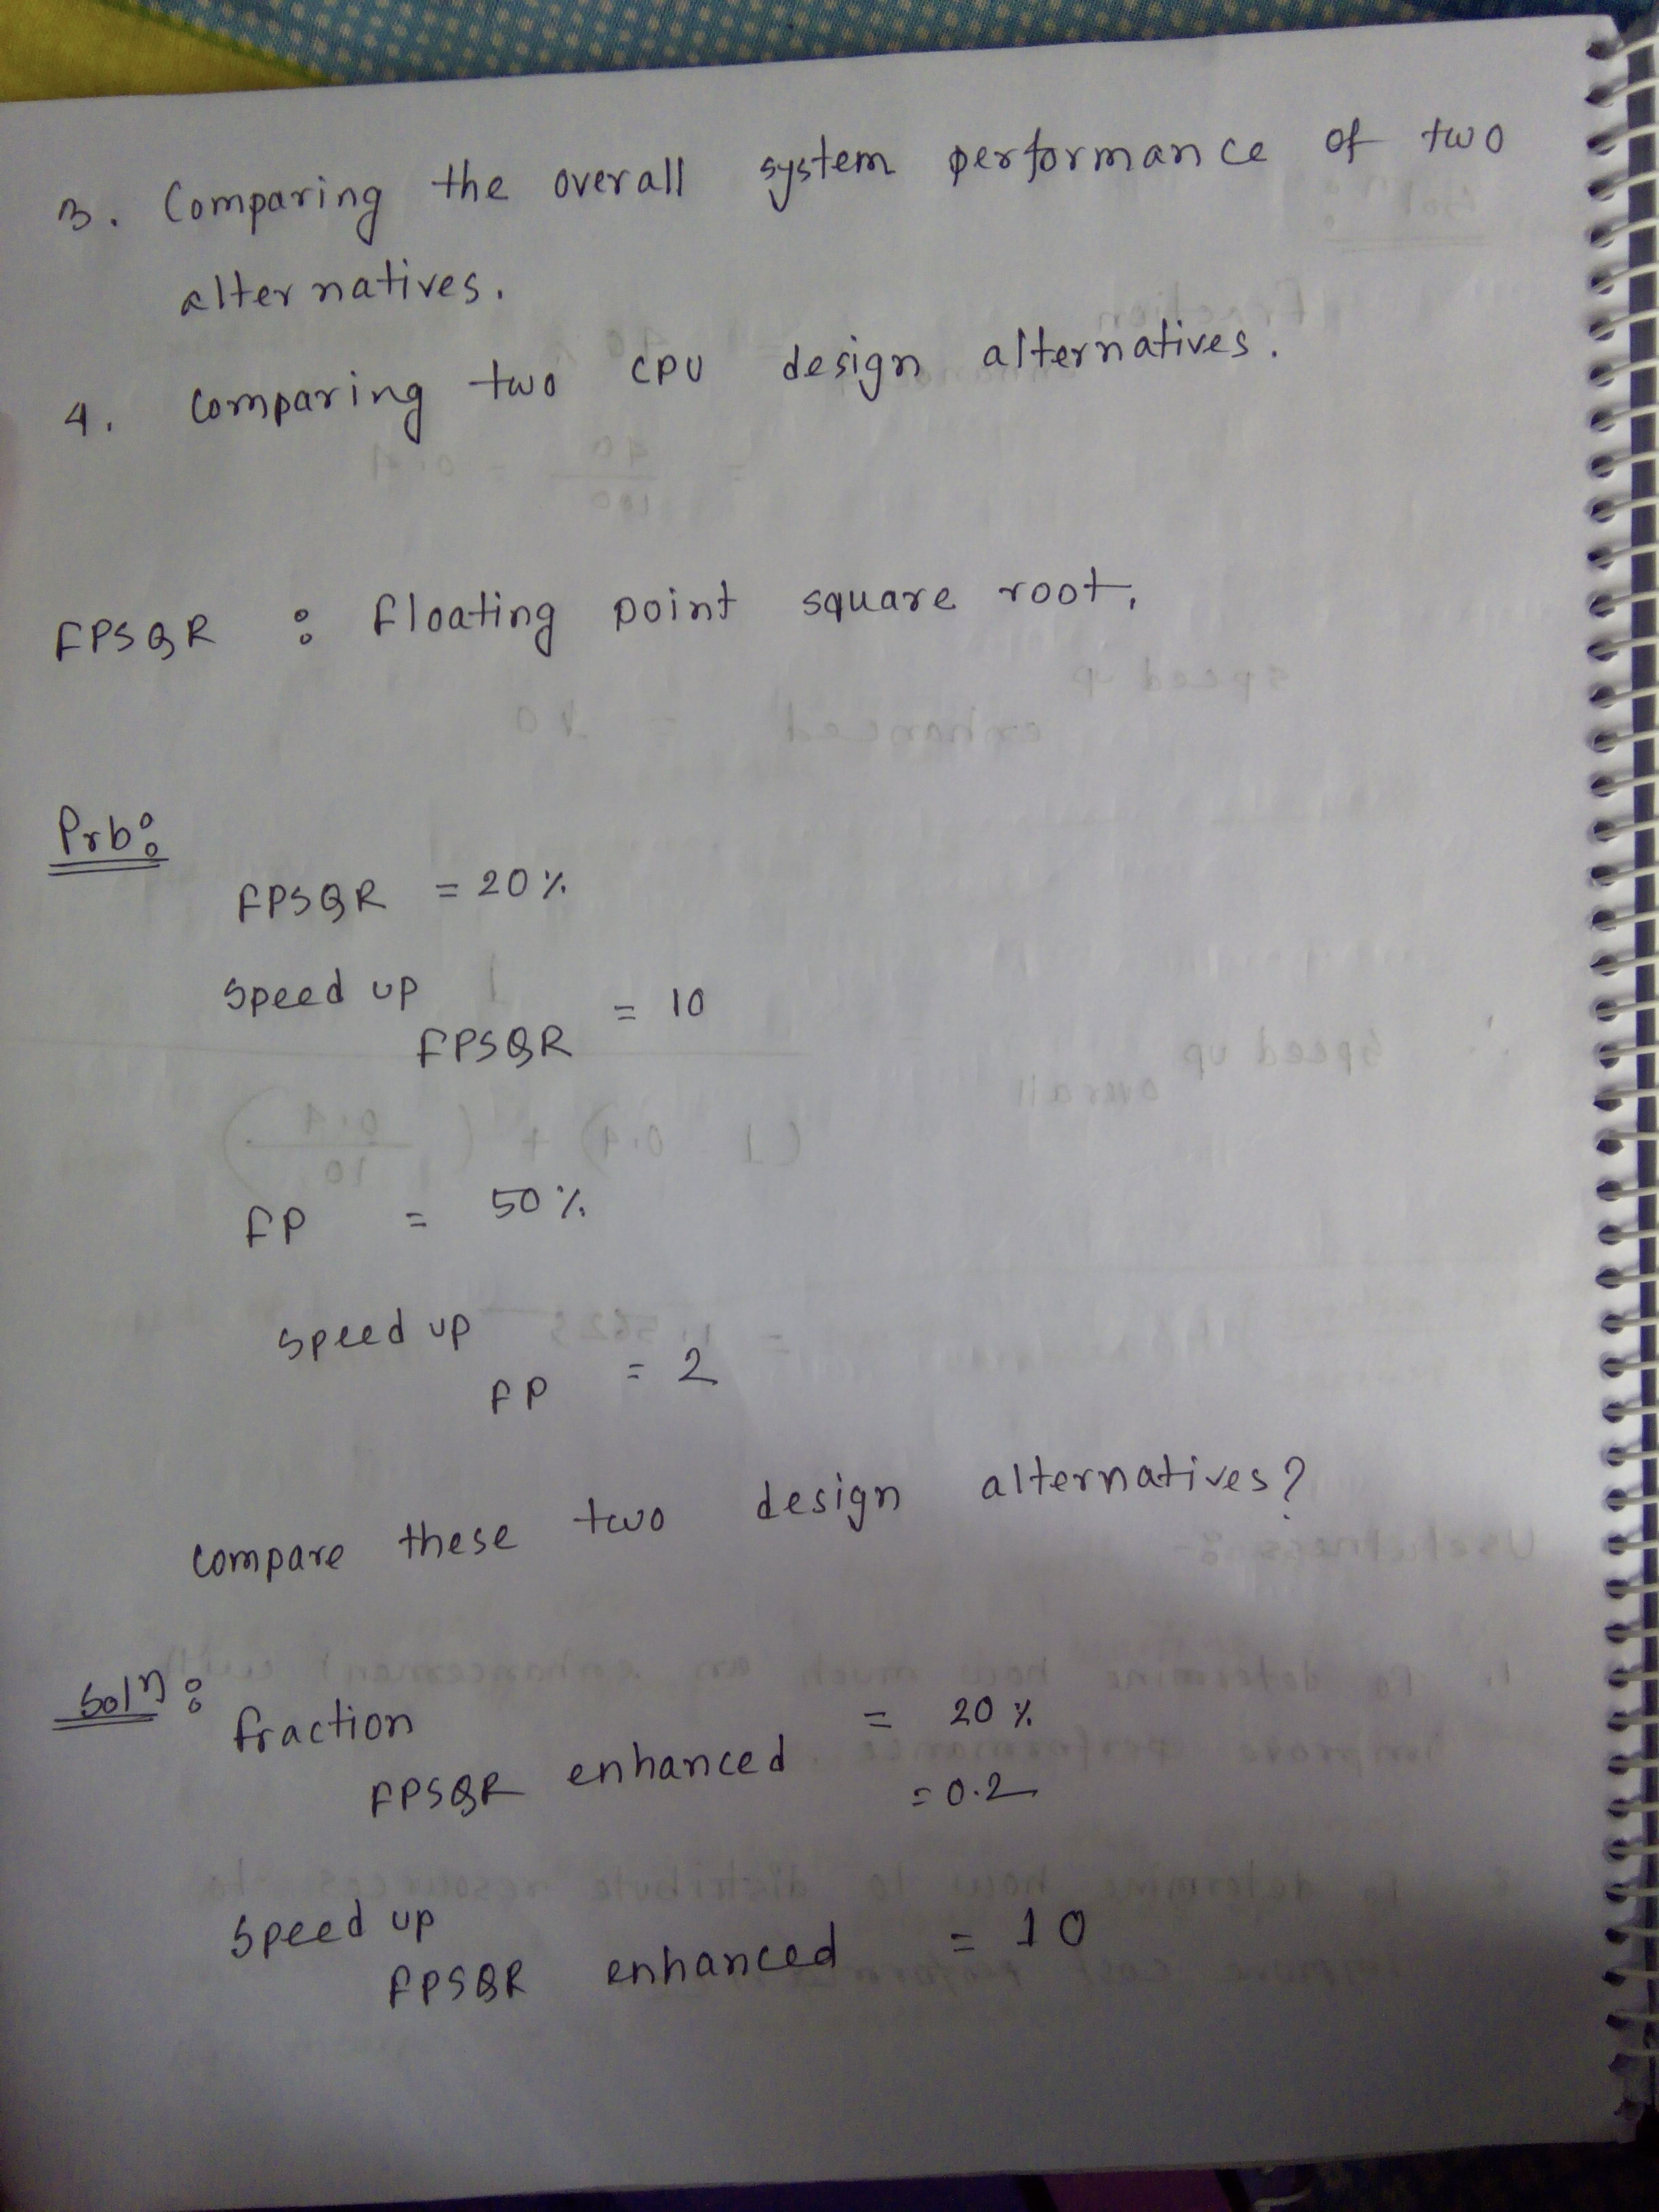 3. Comparing the overall system performance of two
alternatives.
4. Comparing two CPU design alternatives.
FPSQR : floating point square root.
Prb:
FPSQR = 20%
Speed up FPSQR = 10
FP = 50%
Speed up FP = 2
Compare these two design alternatives?
Soln: fraction FPSQR enhanced = 20%
= 0.2
Speed up FPSQR enhanced = 10